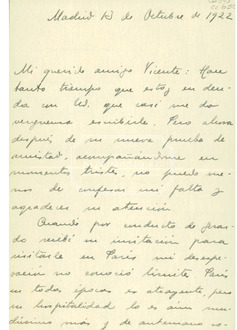 Madrid 13 de Octubre de 1922
Mi querido amigo Vicente: Hace
tanto tiempo que estoy en deu-
da con Ud. que casi me da
vergüenza escribirle. Pero ahora
después de su nueva prueba de
amistad, acompañándome en
momentos tristes, no puedo me-
nos de confesar mi falta y
agradecer su atención.
Cuando por conducto de Gerar-
do recibí su invitación para
visitarle en París mi deses-
peración no conoció límite. París
en todas épocas es atrayente, pero
su hospitalidad lo es aún mu-
chísimo más y de antemano